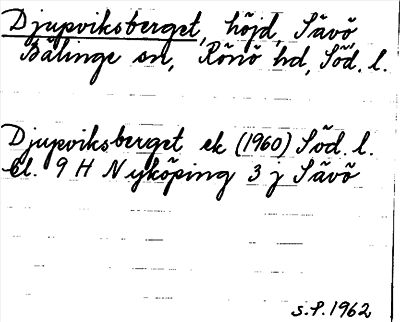 Djupviksberget, höjd, Sävö
Bälinge sn, Rönö hd, Söd. l.
Djupviksberget ek (1960) Söd. l.
bl. 9 H Nyköping 3 j Sävö
s.f. 1962